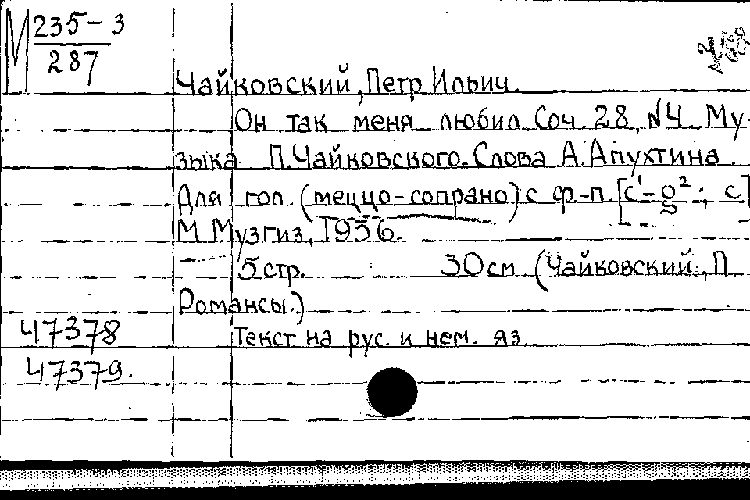 М 235-3
287
Чайковский, Петр Ильич.
Он так меня любил. Соч. 28, №4. Му-
зыка П. Чайковского. Слова А. Апухтина
Для гол. (меццо-сопрано) с ф-п. [c¹-g²; c]
М. Музгиз, 1956.
5 стр. 30 см (Чайковский, П
Романсы.)
47378 Текст на рус. и нем. яз.
47379.